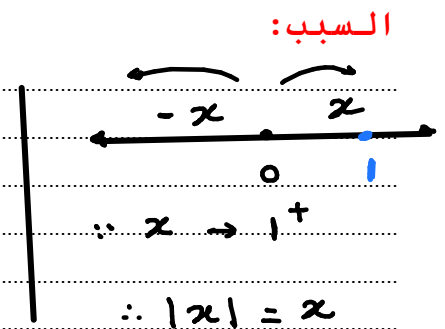 السبب:
- x x
0 1
∵ x → 1⁺
∴ |x| = x